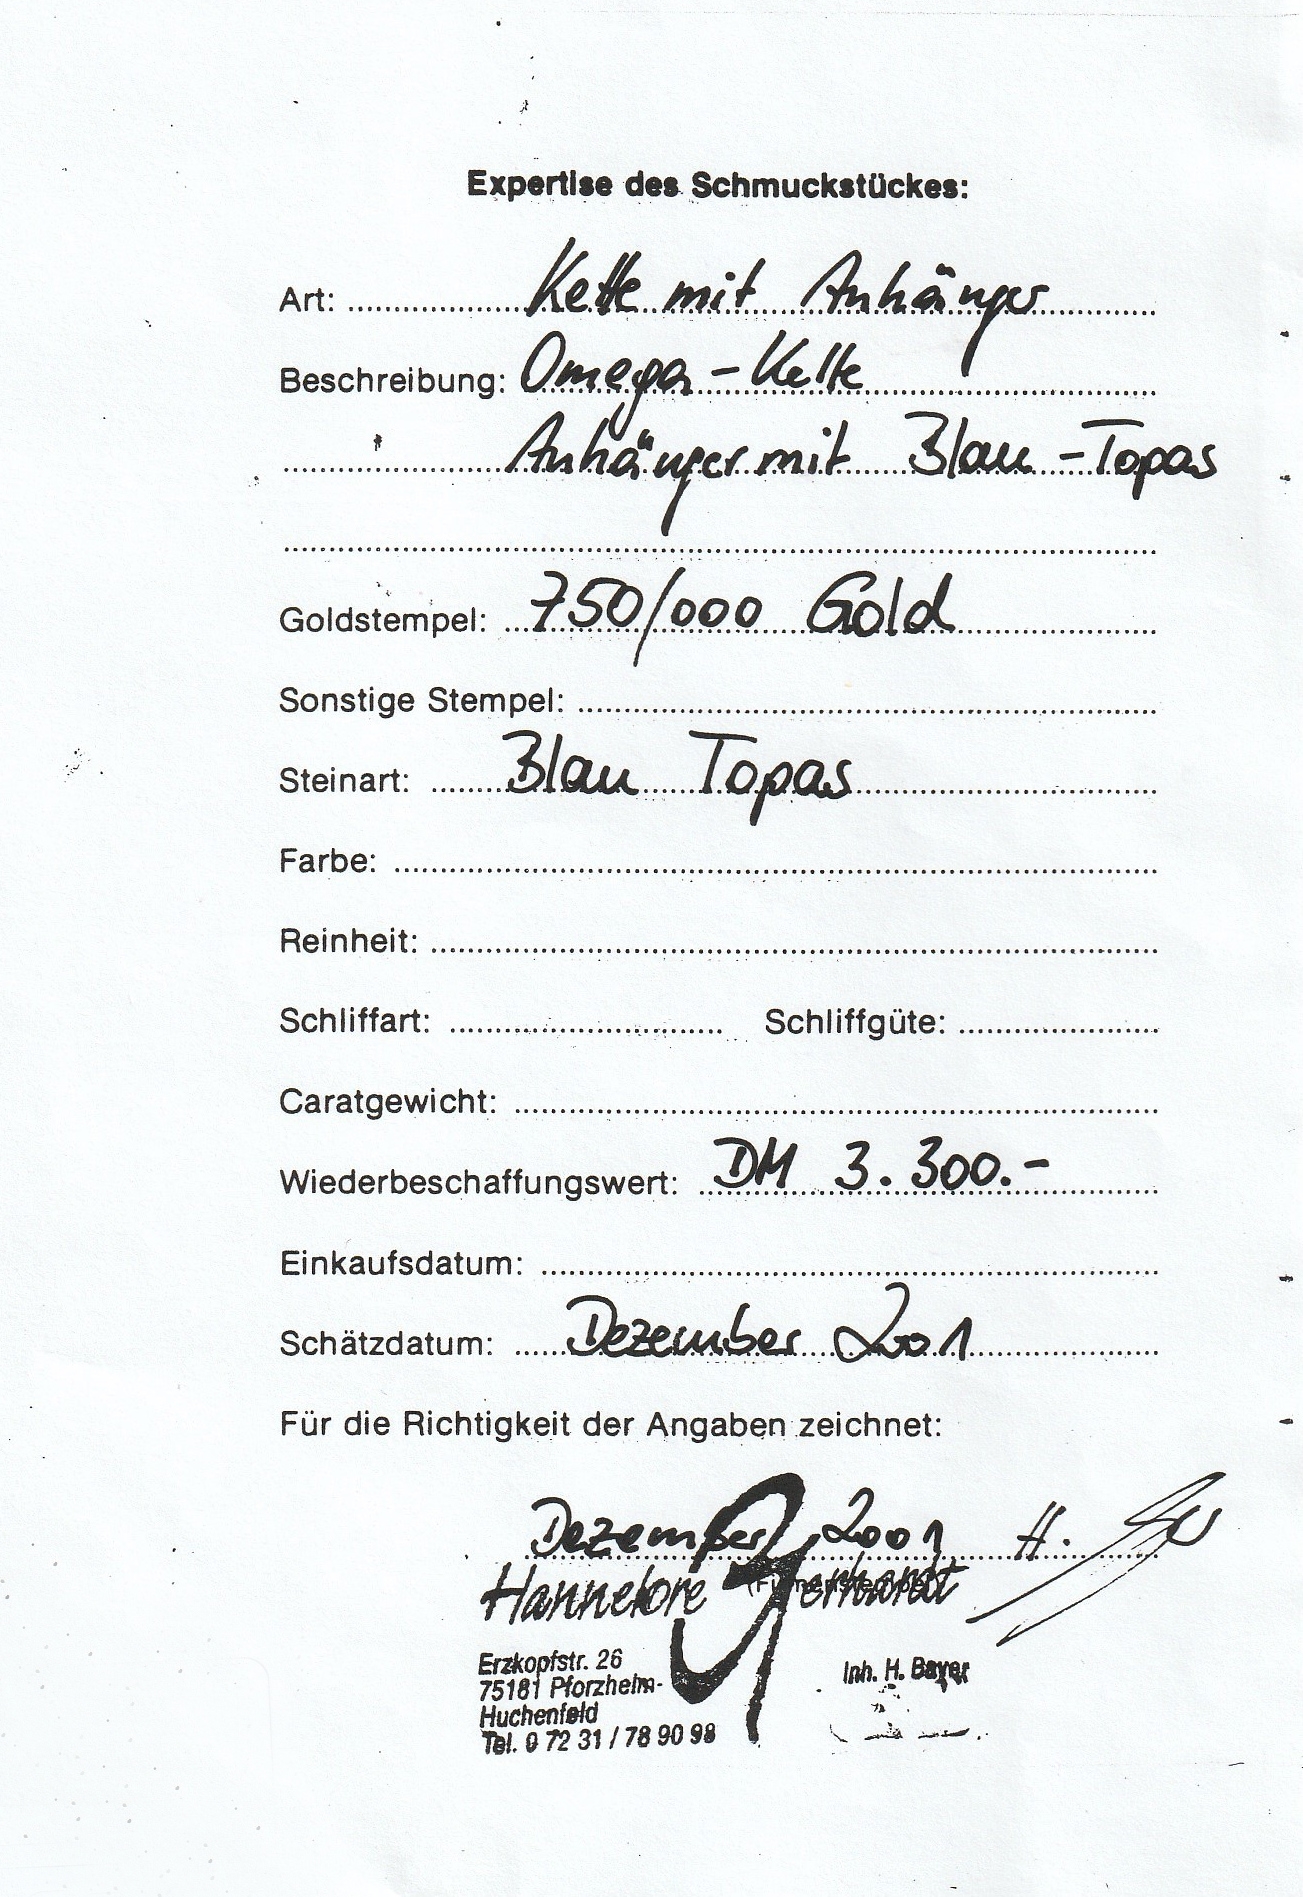 Expertise des Schmuckstückes:
Art: Kette mit Anhänger
Beschreibung: Omega-Kette
Anhänger mit Blau-Topas
Goldstempel: 750/000 Gold
Sonstige Stempel:
Steinart: Blau Topas
Farbe:
Reinheit:
Schliffart: Schliffgüte:
Caratgewicht:
Wiederbeschaffungswert: DM 3.300.-
Einkaufsdatum:
Schätzdatum: Dezember 2001
Für die Richtigkeit der Angaben zeichnet:
Dezember 2001 H.
Hannelore Gerhardt
Erzkopfstr. 26
75181 Pforzheim-
Huchenfeld
Tel. 0 72 31 / 78 90 98
Inh. H. Bayer